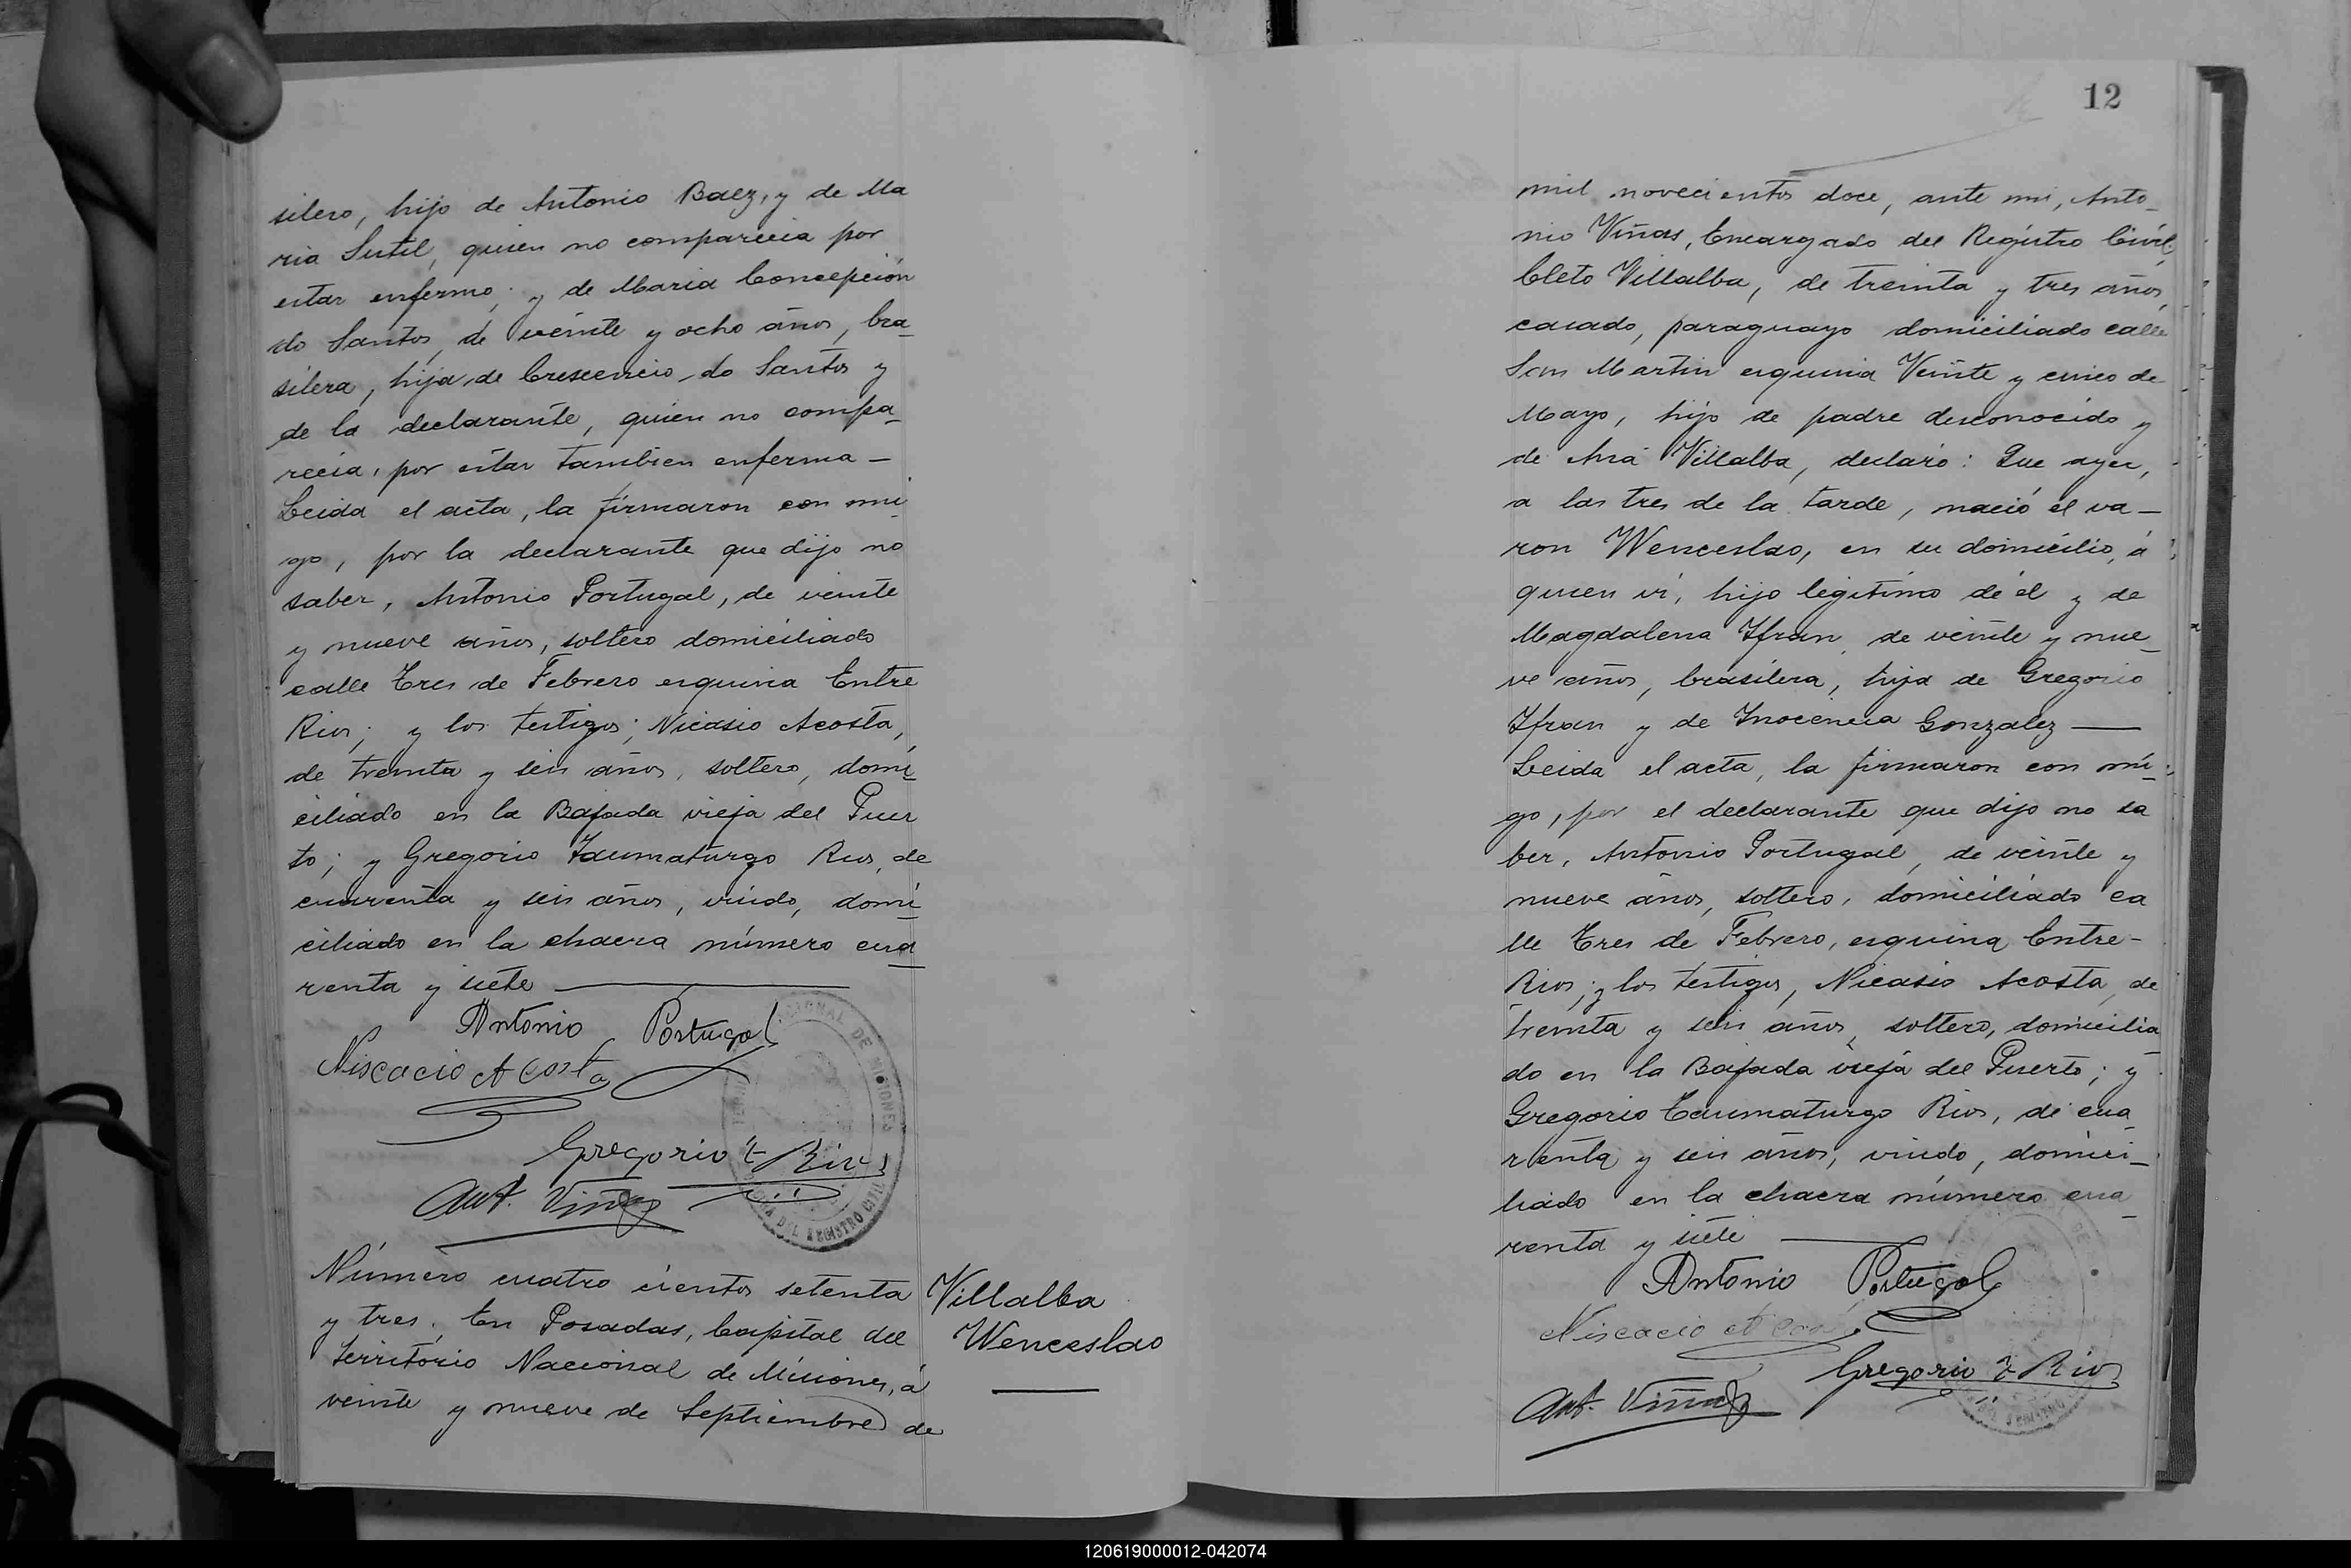 silero, hijo de Antonio Baez, y de Ma
ria Sutil, quien no comparecia por
estar enfermo; y de Maria Concepción
do Santos, de veinte y ocho años, bra_
silera, hija de Crescencio do Santos y
de la declarante, quien no compa_
recia, por estar tambien enferma —
Leida el acta, la firmaron con mi_
go, por la declarante que dijo no
saber, Antonio Portugal, de veinte
y nueve años, soltero domiciliado
calle Tres de Febrero esquina Entre
Rios; y los testigos; Nicasio Acosta,
de treinta y seis años, soltero, domi_
ciliado en la Bajada vieja del Puer
to; y Gregorio Taumaturgo Rios, de
cuarenta y seis años, viudo, domi_
ciliado en la chacra número cua_
renta y siete —
Antonio Portugal
Niscacio Acosta
Gregorio T Rios
Ant. Viñas
Número cuatro cientos setenta
y tres. En Posadas, Capital del
Territorio Nacional de Misiones, á
veinte y nueve de Septiembre de
Villalba
Wenceslao
12
mil novecientos doce, ante mi, Anto_
nio Viñas, Encargado del Registro Civil,
Cleto Villalba, de treinta y tres años,
casado, paraguayo domiciliado calle
San Martin esquina Veinte y cinco de
Mayo, hijo de padre desconocido y
de Ana Villalba, declaró: Que ayer,
a las tres de la tarde, nació el va—
ron Wenceslao, en su domicilio, á
quien ví, hijo legitimo de él y de
Magdalena Ifran, de veinte y nue_
ve años, brasilera, hija de Gregorio
Ifran y de Inocencia Gonzalez —
Leida el acta, la firmaron con mi_
go, por el declarante que dijo no sa
ber, Antonio Portugal, de veinte y
nueve años, soltero, domiciliado ca
lle Tres de Febrero, esquina Entre-
Rios; y los testigos, Nicasio Acosta, de
treinta y seis años, soltero, domicilia_
do en la Bajada vieja del Puerto; y
Gregorio Taumaturgo Rios, de cua_
renta y seis años, viudo, domici_
liado en la chacra número cua_
renta y siete —
Antonio Portugal
Niscacio
Gregorio T Rios
Ant. Viñas
120619000012-042074